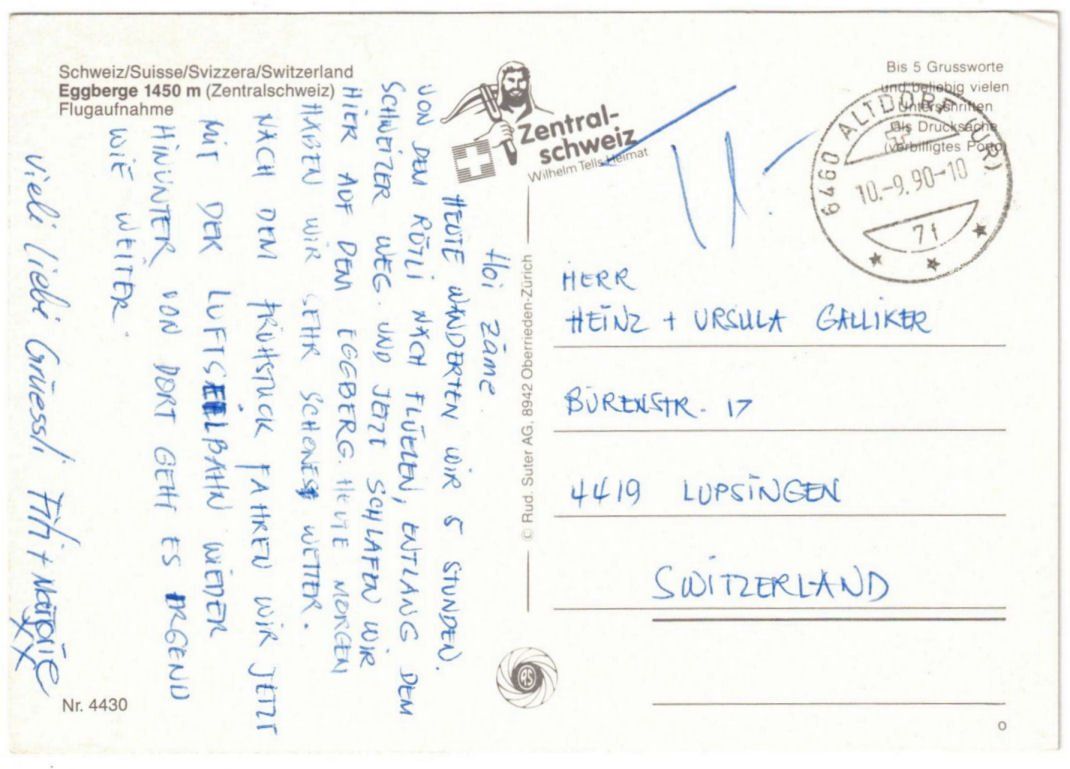 Schweiz/Suisse/Svizzera/Switzerland
Eggberge 1450 m (Zentralschweiz)
Flugaufnahme
Zentral-
schweiz
Wilhelm Tells Heimat
Bis 5 Grussworte
und beliebig vielen
Unterschriften
als Drucksache
(verbilligtes Porto)
6460 ALTDORF (UR)
10.-9.90-10
7f
Hoi Zäme
HEUTE WANDERTEN WIR 5 STUNDEN.
VON DEM RÜTLI NACH FLÜELEN, ENTLANG DEM
SCHWEIZER WEG. UND JETZT SCHLAFEN WIR
HIER AUF DEM EGGBERG. HEUTE MORGEN
HABEN WIR SEHR SCHÖNES WETTER.
NACH DEM FRÜHSTÜCK FAHREN WIR JETZT
MIT DER LUFTSEILBAHN WIEDER
HINUNTER, VON DORT GEHT ES IRGEND
WIE WEITER.
Vieli liebi Grüessli Titi + Marjorie
XX
© Rud. Suter AG, 8942 Oberrieden-Zürich
HERR
HEINZ + URSULA GALLIKER
BÜRENSTR. 17
4419 LUPSINGEN
SWITZERLAND
RS
Nr. 4430
o